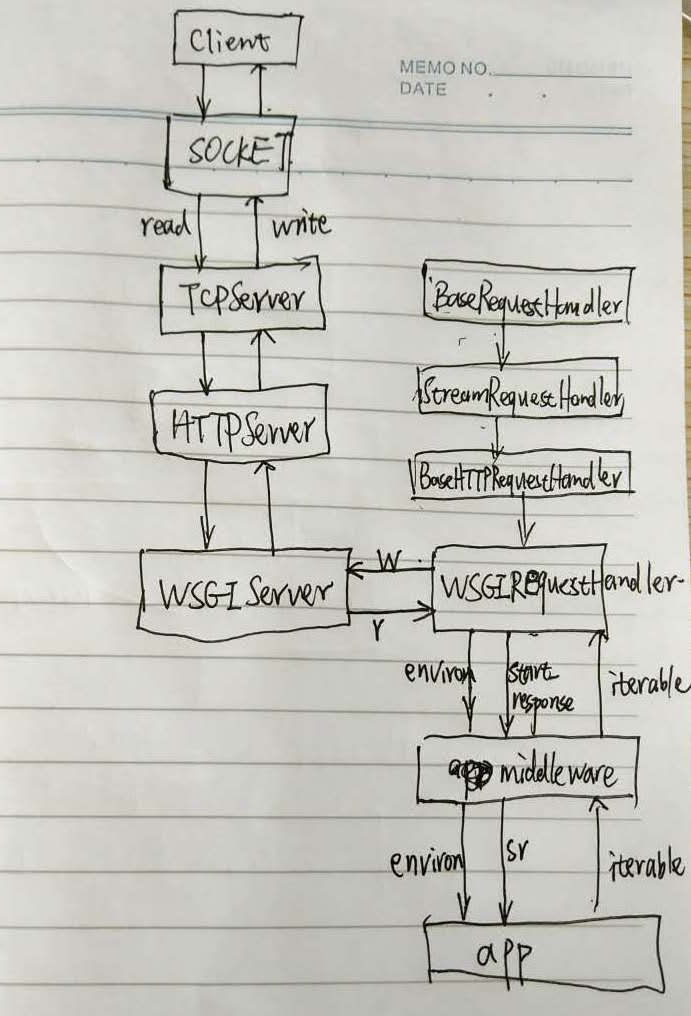 Client
MEMO NO.
DATE . .
SOCKET
read
write
TCPServer
BaseRequestHandler
StreamRequestHandler
HTTPServer
BaseHTTPRequestHandler
W
WSGI Server
WSGIREquestHandler
r
environ
start
response
iterable
app middleware
environ
sr
iterable
app